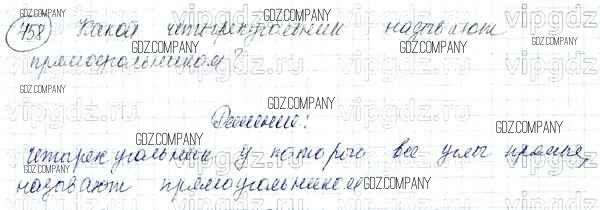 458 Какой четырехугольник называют
прямоугольником?
Решение:
четырехугольник у которого все углы прямые,
называют прямоугольником
GDZ.COMPANY
GDZ.COMPANY
GDZ.COMPANY
GDZ.COMPANY
GDZ.COMPANY
GDZ.COMPANY
GDZ.COMPANY
GDZ.COMPANY
vipgdz.ru